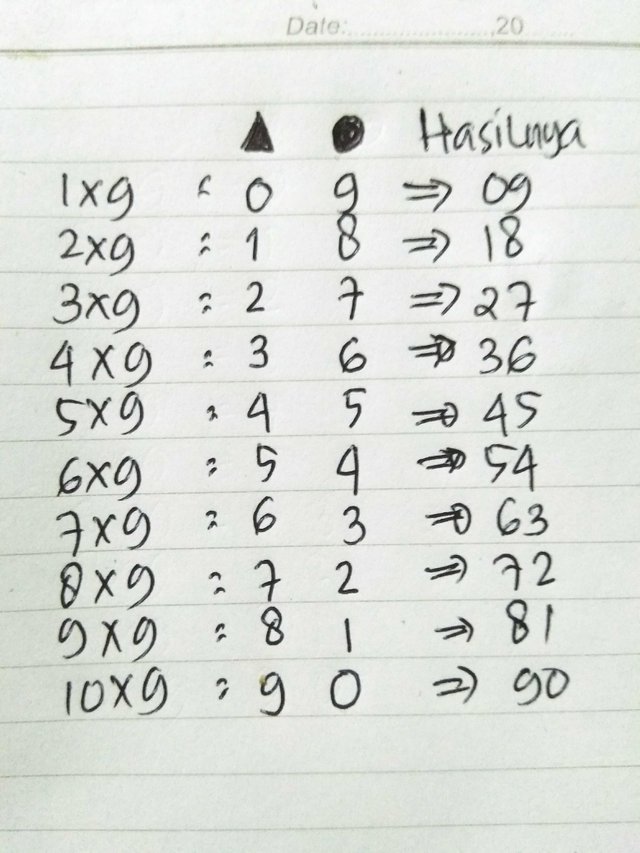 Date:....................,20
▲ ● Hasilnya
1x9 = 0 9 => 09
2x9 = 1 8 => 18
3x9 = 2 7 => 27
4x9 = 3 6 => 36
5x9 = 4 5 => 45
6x9 = 5 4 => 54
7x9 = 6 3 => 63
8x9 = 7 2 => 72
9x9 = 8 1 => 81
10x9 = 9 0 => 90